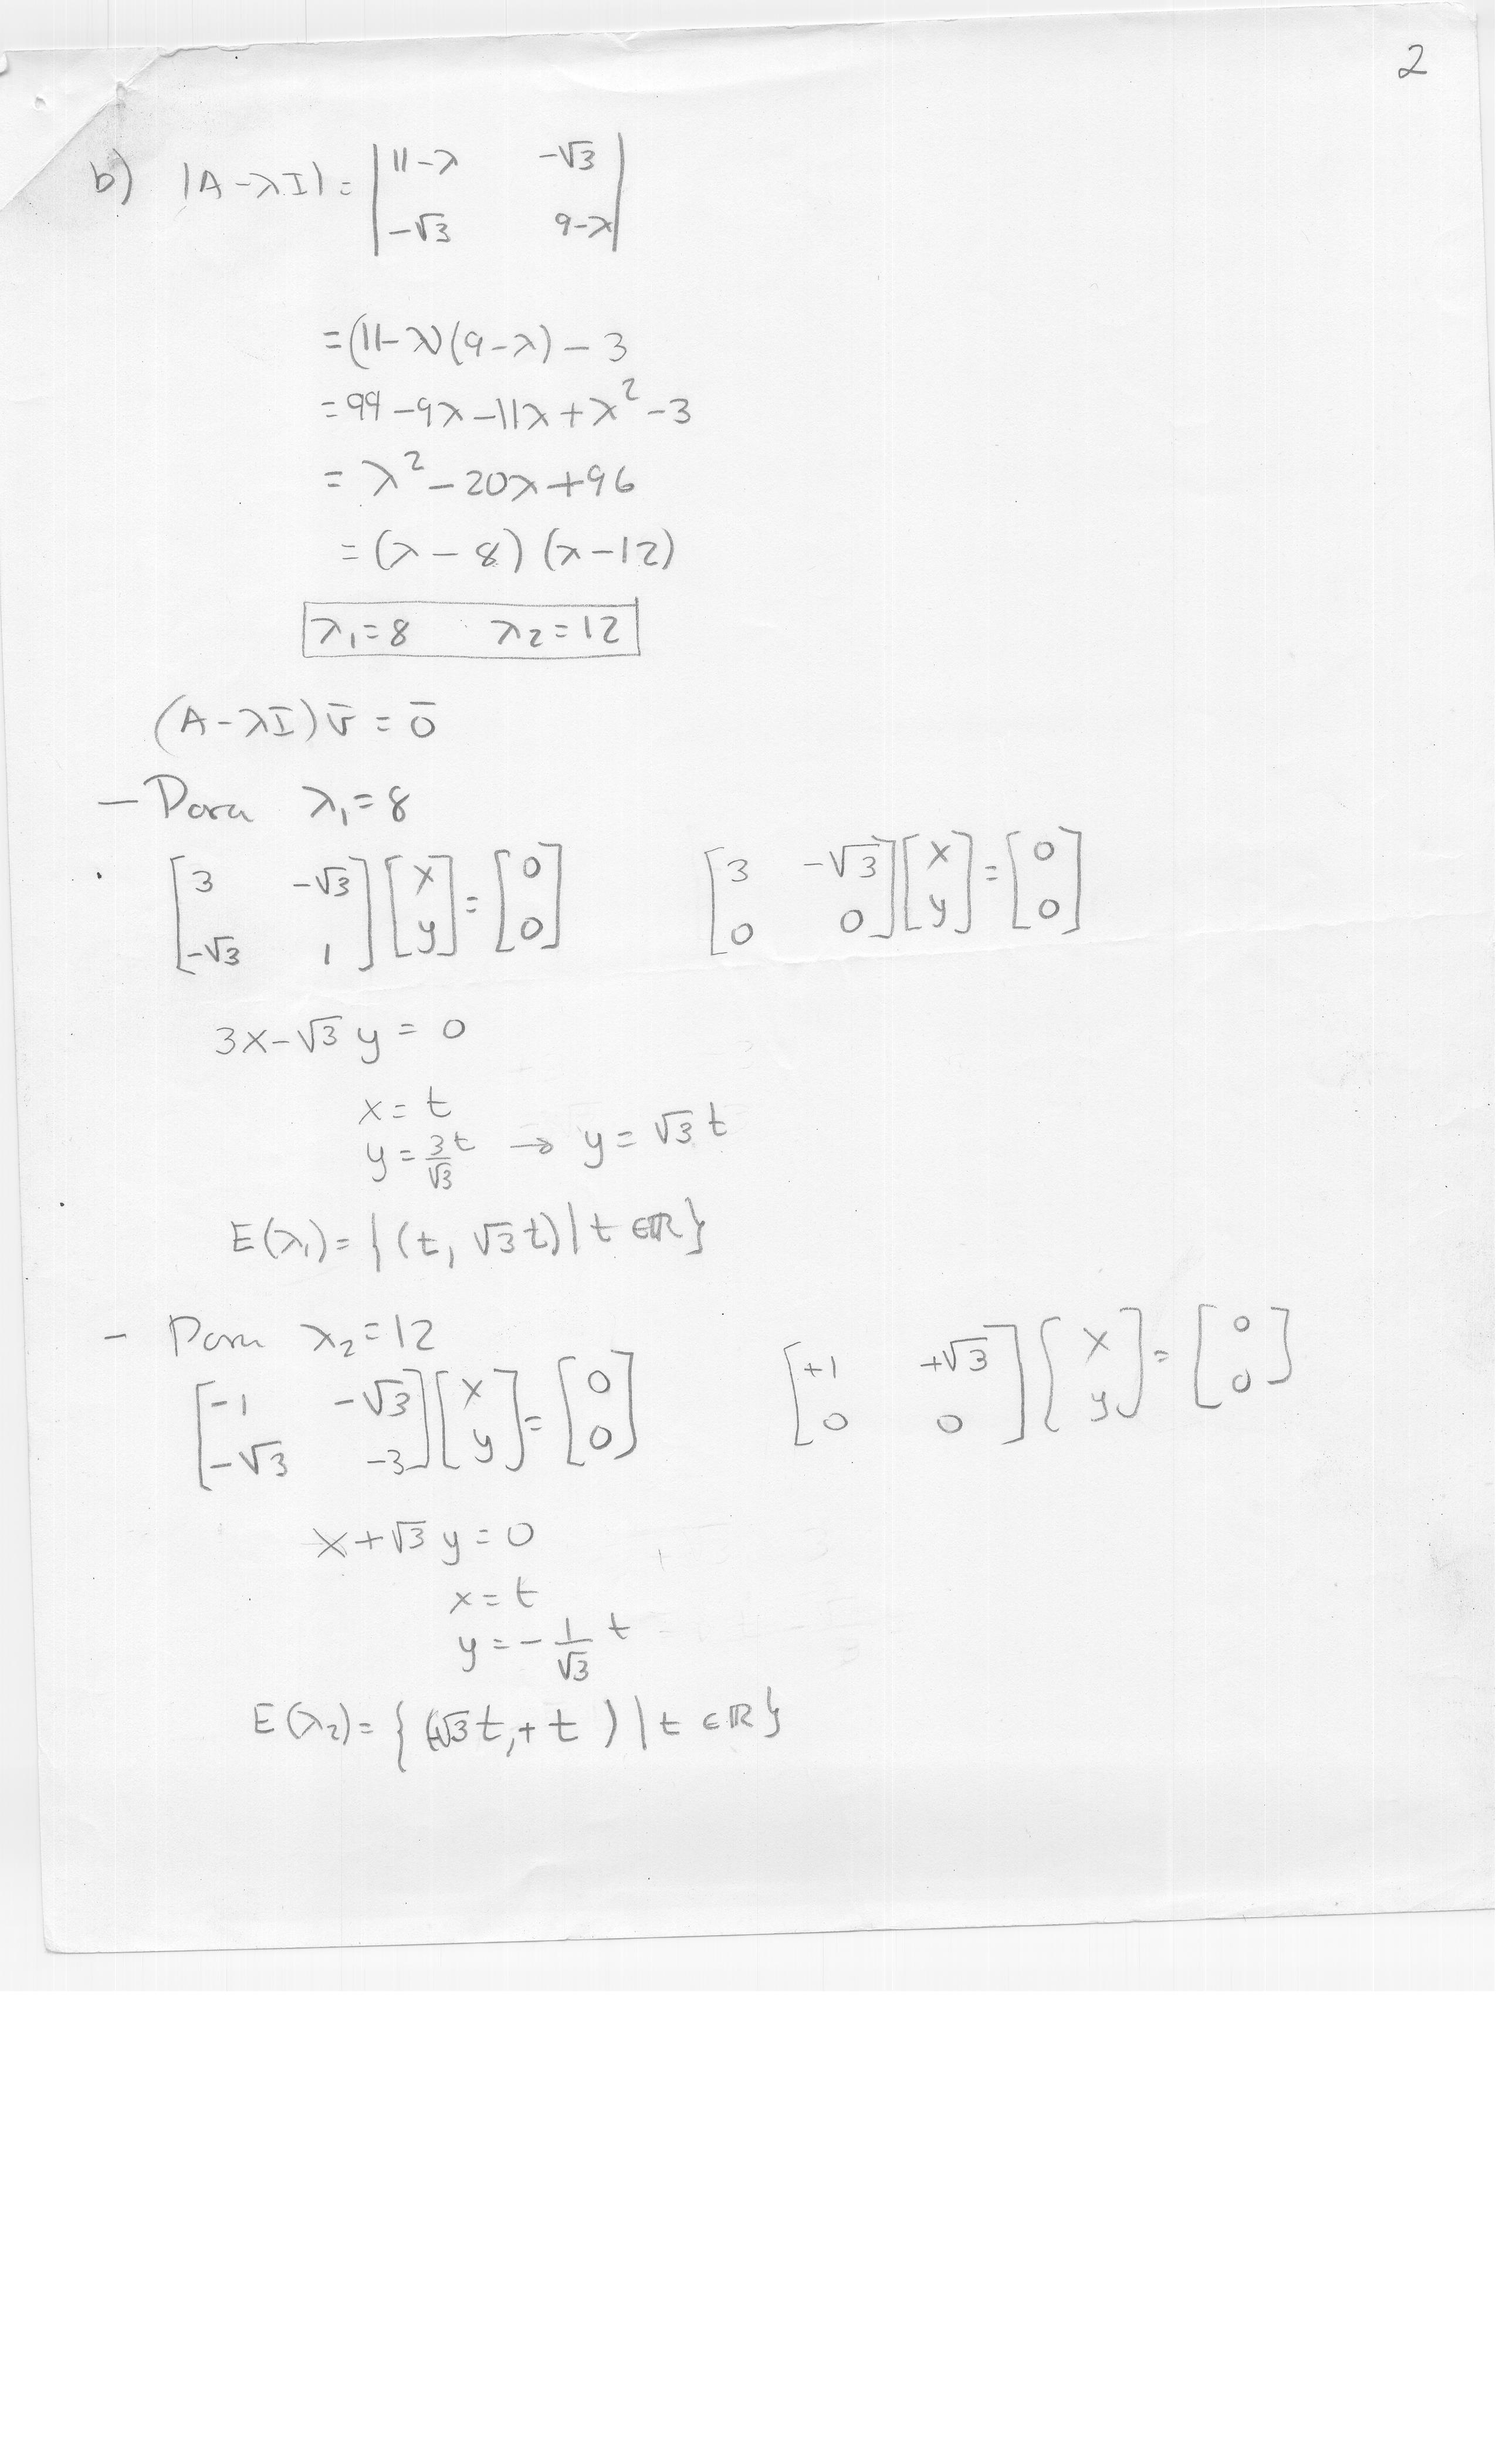 2
b) |A-λI| = | 11-λ -√3 |
| -√3 9-λ |
= (11-λ)(9-λ) - 3
= 99 - 9λ - 11λ + λ² - 3
= λ² - 20λ + 96
= (λ - 8) (λ - 12)
λ₁=8 λ₂=12
(A-λI) v̄ = 0̄
- Para λ₁=8
[3 -√3; -√3 1] [x; y] = [0; 0] [3 -√3; 0 0] [x; y] = [0; 0]
3x - √3 y = 0
x = t
y = 3/√3 t → y = √3 t
E(λ₁) = {(t, √3 t) | t ∈ ℝ}
- Para λ₂=12
[-1 -√3; -√3 -3] [x; y] = [0; 0] [+1 +√3; 0 0] [x; y] = [0; 0]
x + √3 y = 0
x = t
y = - 1/√3 t
E(λ₂) = { (√3 t, + t ) | t ∈ ℝ}